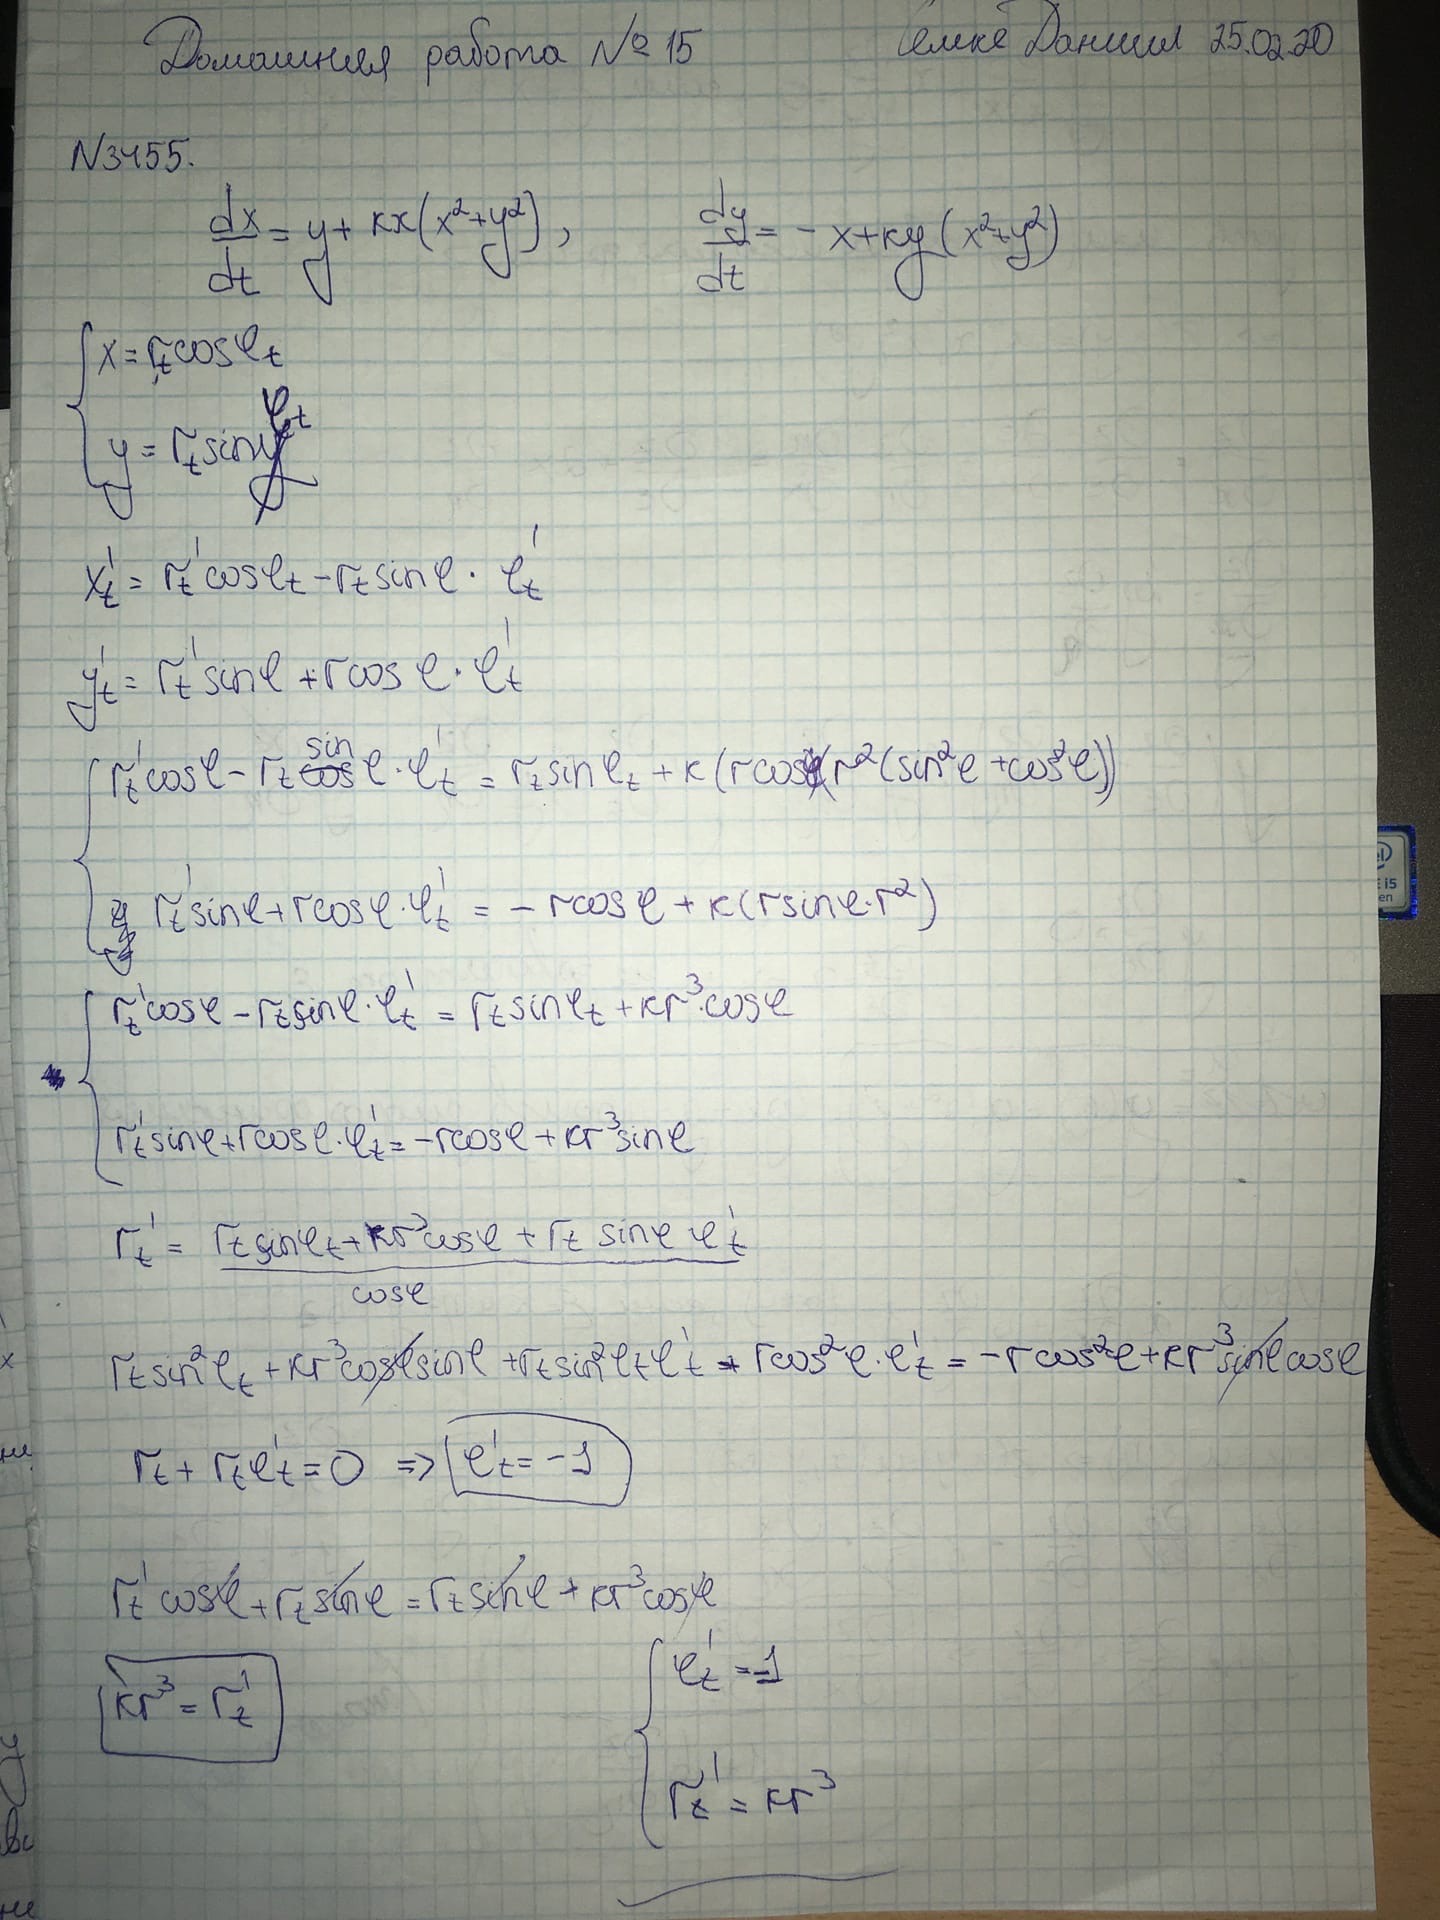 Домашняя работа № 15 Даниил 25.02.20
N3455.
dx/dt = y + кx(x²+y²), dy/dt = - x + кy(x²+y²)
{ x = r_t cosφ_t
y = r_t sin φ_t
x'_t = r'_t cosφ_t - r_t sinφ · φ'_t
y'_t = r'_t sinφ + r cos φ · φ'_t
{ r'_t cosφ - r_t sin φ · φ'_t = r_t sinφ_t + к(r cosφ(r²(sin²φ + cos²φ))
r'_t sinφ + r cosφ · φ'_t = - r cosφ + к(r sinφ · r²)
{ r'_t cosφ - r_t sinφ · φ'_t = r_t sinφ_t + кr³ · cosφ
r'_t sinφ + r cosφ · φ'_t = - r cosφ + кr³ sinφ
r'_t = (r_t sinφ_t + кr³ cosφ + r_t sinφ φ'_t) / cosφ
r_t sin²φ_t + кr³ cosφ sinφ + r_t sin²φ_t φ'_t + r cos²φ · φ'_t = - r cos²φ + кr³ sinφ cosφ
r_t + r_t φ'_t = 0 => φ'_t = -1
r'_t cosφ + r_t sinφ = r_t sinφ + кr³ cosφ
кr³ = r'_t
{ φ'_t = -1
r'_t = кr³